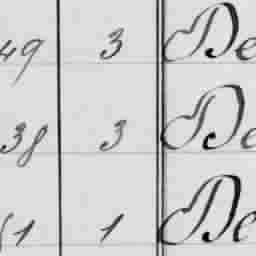 49 3 De
38 3 De
51 1 De